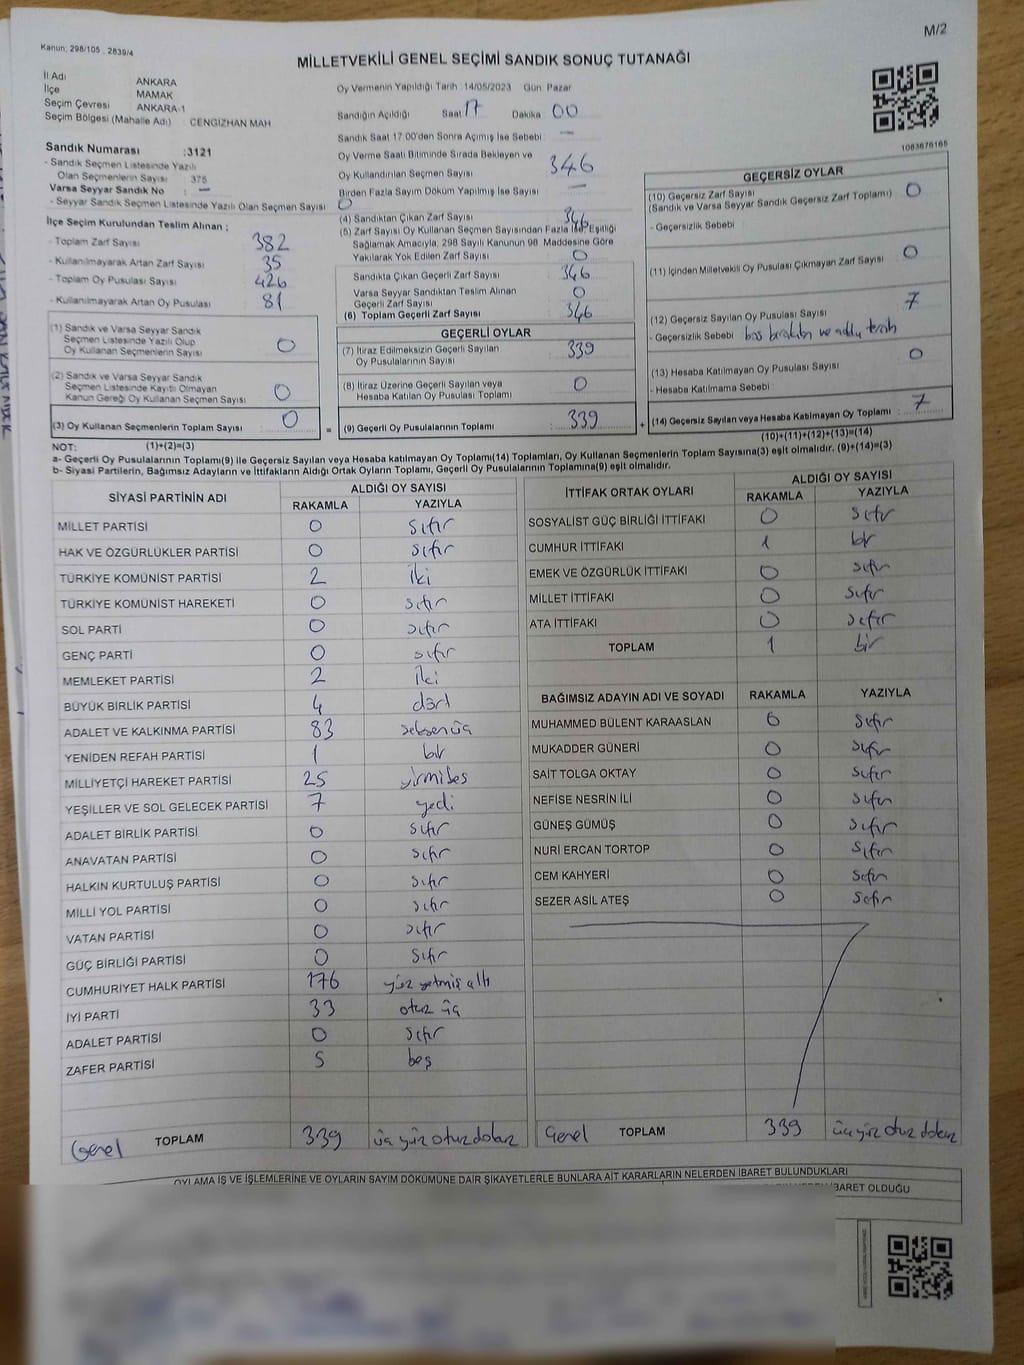 M/2
Kanun; 298/105 , 2839/4
MİLLETVEKİLİ GENEL SEÇİMİ SANDIK SONUÇ TUTANAĞI
İl Adı ANKARA
İlçe MAMAK
Seçim Çevresi ANKARA-1
Seçim Bölgesi (Mahalle Adı) CENGİZHAN MAH
Sandık Numarası :3121
- Sandık Seçmen Listesinde Yazılı
Olan Seçmenlerin Sayısı : 375
Varsa Seyyar Sandık No : —
- Seyyar Sandık Seçmen Listesinde Yazılı Olan Seçmen Sayısı 0
İlçe Seçim Kurulundan Teslim Alınan ;
- Toplam Zarf Sayısı 382
- Kullanılmayarak Artan Zarf Sayısı 35
- Toplam Oy Pusulası Sayısı 426
- Kullanılmayarak Artan Oy Pusulası 81
(1) Sandık ve Varsa Seyyar Sandık
Seçmen Listesinde Yazılı Olup
Oy Kullanan Seçmenlerin Sayısı 0
(2) Sandık ve Varsa Seyyar Sandık
Seçmen Listesinde Kayıtlı Olmayan
Kanun Gereği Oy Kullanan Seçmen Sayısı 0
(3) Oy Kullanan Seçmenlerin Toplam Sayısı : 0 =
Oy Vermenin Yapıldığı Tarih 14/05/2023 Gün Pazar
Sandığın Açıldığı Saat 17 Dakika 00
Sandık Saat 17:00'den Sonra Açımış İse Sebebi —
Oy Verme Saati Bitiminde Sırada Bekleyen ve
Oy Kullandırılan Seçmen Sayısı 346
Birden Fazla Sayım Döküm Yapılmış İse Sayısı —
(4) Sandıktan Çıkan Zarf Sayısı 346
(5) Zarf Sayısı Oy Kullanan Seçmen Sayısından Fazla İse, Eşitliği
Sağlamak Amacıyla, 298 Sayılı Kanunun 98. Maddesine Göre
Yakılarak Yok Edilen Zarf Sayısı 0
Sandıkta Çıkan Geçerli Zarf Sayısı 346
Varsa Seyyar Sandıktan Teslim Alınan
Geçerli Zarf Sayısı 0
(6) Toplam Geçerli Zarf Sayısı 346
GEÇERLİ OYLAR
(7) İtiraz Edilmeksizin Geçerli Sayılan
Oy Pusulalarının Sayısı 339
(8) İtiraz Üzerine Geçerli Sayılan veya
Hesaba Katılan Oy Pusulası Toplamı 0
(9) Geçerli Oy Pusulalarının Toplamı : 339 +
1063676165
GEÇERSİZ OYLAR
(10) Geçersiz Zarf Sayısı
(Sandık ve Varsa Seyyar Sandık Geçersiz Zarf Toplamı) 0
- Geçersizlik Sebebi
(11) İçinden Milletvekili Oy Pusulası Çıkmayan Zarf Sayısı 0
(12) Geçersiz Sayılan Oy Pusulası Sayısı 7
- Geçersizlik Sebebi boş bırakılan ve
(13) Hesaba Katılmayan Oy Pusulası Sayısı 0
- Hesaba Katılmama Sebebi
(14) Geçersiz Sayılan veya Hesaba Katılmayan Oy Toplamı : 7
NOT: (1)+(2)=(3) (10)+(11)+(12)+(13)=(14)
a- Geçerli Oy Pusulalarının Toplamı(9) ile Geçersiz Sayılan veya Hesaba katılmayan Oy Toplamı(14) Toplamları, Oy Kullanan Seçmenlerin Toplam Sayısına(3) eşit olmalıdır. (9)+(14)=(3)
b- Siyasi Partilerin, Bağımsız Adayların ve İttifakların Aldığı Ortak Oyların Toplamı, Geçerli Oy Pusulalarının Toplamına(9) eşit olmalıdır.
SİYASİ PARTİNİN ADI ALDIĞI OY SAYISI
RAKAMLA YAZIYLA
MİLLET PARTİSİ 0 sıfır
HAK VE ÖZGÜRLÜKLER PARTİSİ 0 sıfır
TÜRKİYE KOMÜNİST PARTİSİ 2 iki
TÜRKİYE KOMÜNİST HAREKETİ 0 sıfır
SOL PARTİ 0 sıfır
GENÇ PARTİ 0 sıfır
MEMLEKET PARTİSİ 2 iki
BÜYÜK BİRLİK PARTİSİ 4 dört
ADALET VE KALKINMA PARTİSİ 83 seksen üç
YENİDEN REFAH PARTİSİ 1 bir
MİLLİYETÇİ HAREKET PARTİSİ 25 yirmi beş
YEŞİLLER VE SOL GELECEK PARTİSİ 7 yedi
ADALET BİRLİK PARTİSİ 0 sıfır
ANAVATAN PARTİSİ 0 sıfır
HALKIN KURTULUŞ PARTİSİ 0 sıfır
MİLLİ YOL PARTİSİ 0 sıfır
VATAN PARTİSİ 0 sıfır
GÜÇ BİRLİĞİ PARTİSİ 0 sıfır
CUMHURİYET HALK PARTİSİ 176 yüz yetmiş altı
İYİ PARTİ 33 otuz üç
ADALET PARTİSİ 0 sıfır
ZAFER PARTİSİ 5 beş
Genel TOPLAM 339 üç yüz otuz dokuz
İTTİFAK ORTAK OYLARI ALDIĞI OY SAYISI
RAKAMLA YAZIYLA
SOSYALİST GÜÇ BİRLİĞİ İTTİFAKI 0 sıfır
CUMHUR İTTİFAKI 1 bir
EMEK VE ÖZGÜRLÜK İTTİFAKI 0 sıfır
MİLLET İTTİFAKI 0 sıfır
ATA İTTİFAKI 0 sıfır
TOPLAM 1 bir
BAĞIMSIZ ADAYIN ADI VE SOYADI RAKAMLA YAZIYLA
MUHAMMED BÜLENT KARAASLAN 0 sıfır
MUKADDER GÜNERİ 0 sıfır
SAİT TOLGA OKTAY 0 sıfır
NEFİSE NESRİN İLİ 0 sıfır
GÜNEŞ GÜMÜŞ 0 sıfır
NURİ ERCAN TORTOP 0 sıfır
CEM KAHYERİ 0 sıfır
SEZER ASİL ATEŞ 0 sıfır
Genel TOPLAM 339 üç yüz otuz dokuz
OYLAMA İŞ VE İŞLEMLERİNE VE OYLARIN SAYIM DÖKÜMÜNE DAİR ŞİKAYETLERLE BUNLARA AİT KARARLARIN NELERDEN İBARET BULUNDUKLARI
İBARET OLDUĞU